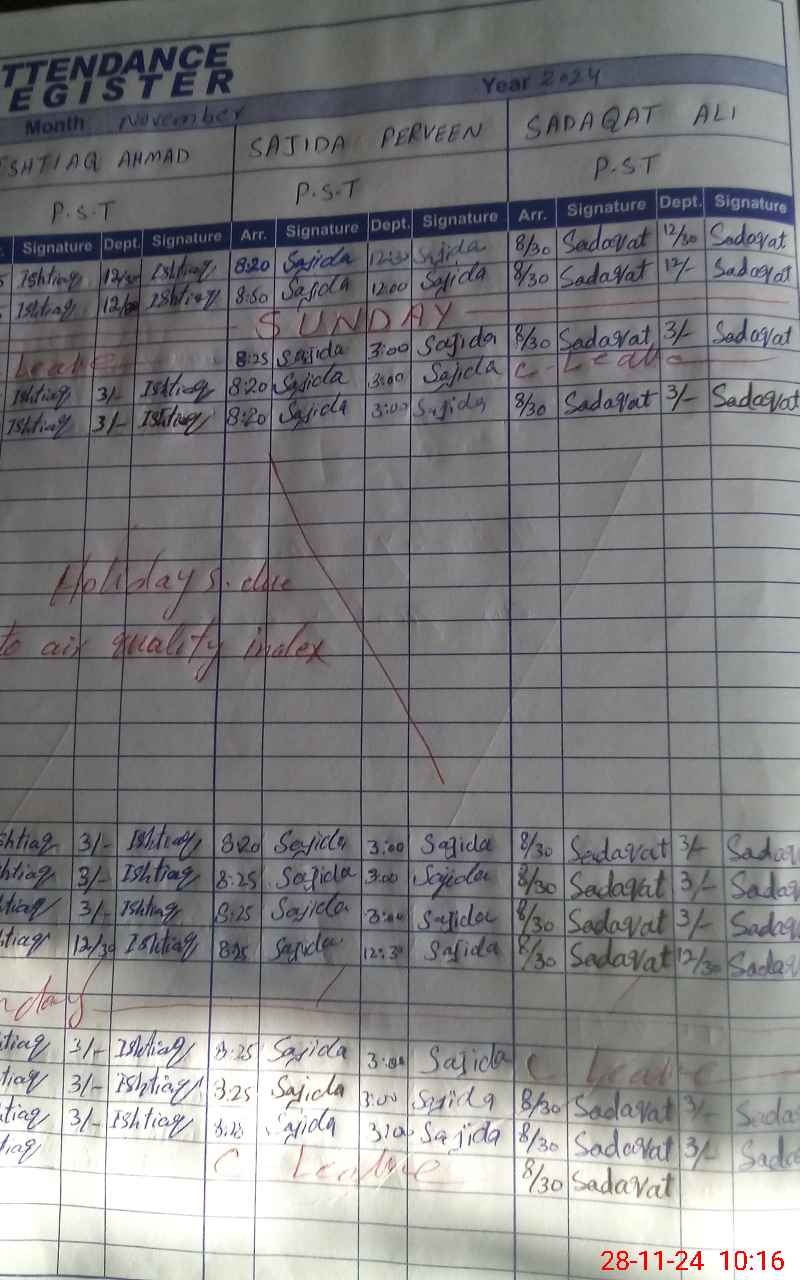 TTENDANCE
EGISTER
Month November Year 2024
SHTIAQ AHMAD SAJIDA PERVEEN SADAQAT ALI
P.S.T P.S.T P.S.T
Signature Dept. Signature Arr. Signature Dept. Signature Arr. Signature Dept. Signature
Ishtiaq 12/30 Ishtiaq 8:20 Sajida 12:30 Sajida 8/30 Sadaqat 12/30 Sadaqat
Ishtiaq Ishtiaq Sajida 12:00 Sajida 8/30 Sadaqat 12/- Sadaqat
SUNDAY
Leave 8:25 Sajida 3:00 Sajida 8/30 Sadaqat 3/- Sadaqat
Ishtiaq 3/- Ishtiaq 8:20 Sajida 3:00 Sajida C. Leave
Ishtiaq 3/- Ishtiaq 8:20 Sajida 3:00 Sajida 8/30 Sadaqat 3/- Sadaqat
Holidays. due
to air quality index
shtiaq 3/- Ishtiaq 8:20 Sajida 3:00 Sajida 8/30 Sadaqat 3/- Sadaqa
htiaq 3/- Ishtiaq 8:25 Sajida 3:00 Sajida 8/30 Sadaqat 3/- Sadaq
htiaq 3/- Ishtiaq 8:25 Sajida 3:00 Sajida 8/30 Sadaqat 3/- Sadaq
htiaq 12/30 Ishtiaq 8:25 Sajida 12:30 Sajida 8/30 Sadaqat 12/30 Sadaq
nday
htiaq 3/- Ishtiaq 8:25 Sajida 3:00 Sajida C Leave
tiaq 3/- Ishtiaq 8:25 Sajida 3:00 Sajida 8/30 Sadaqat 3/- Sada
tiaq 3/- Ishtiaq Sajida 3:00 Sajida 8/30 Sadaqat 3/- Sada
tiaq C Leave 8/30 Sadaqat
28-11-24 10:16